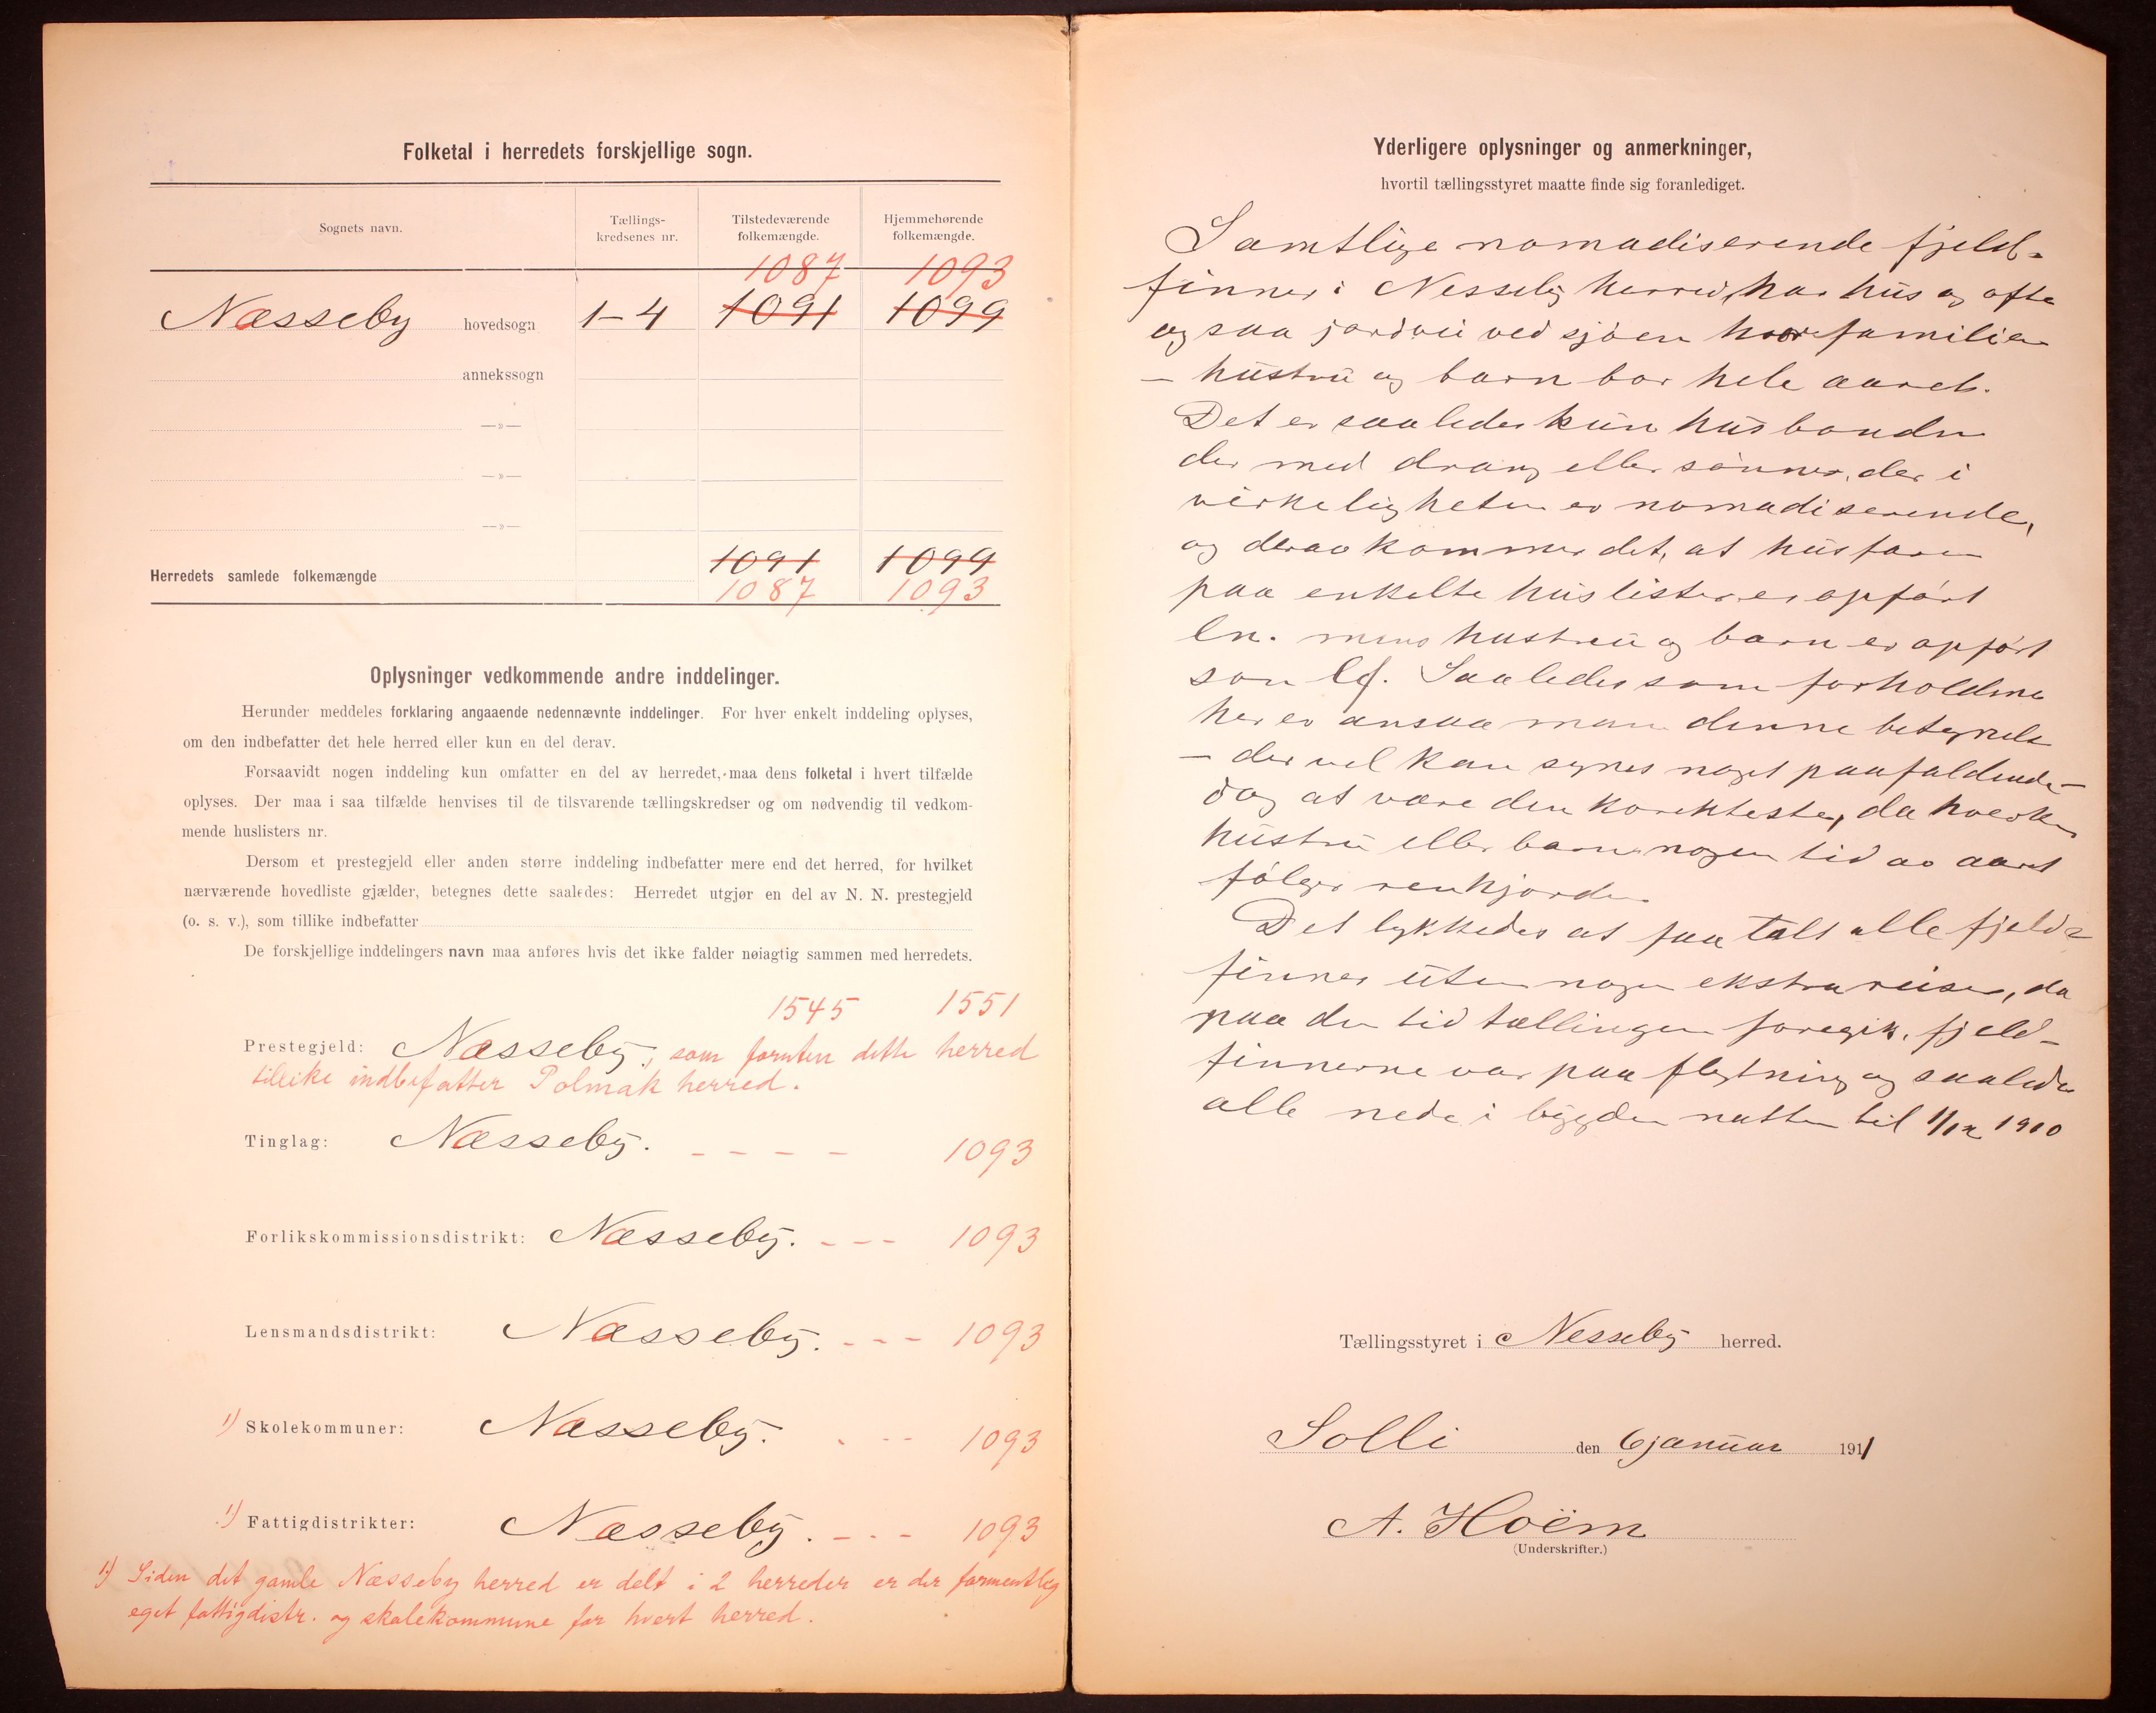 Folketal i herredets forskjellige sogn.
Sognets navn.
Tællings-
kredsenes nr.
Tilstedeværende
folkemængde.
Hjemmehørende
folkemængde.
1087 1093
Næsseby hovedsogn 1-4 1091 1099
annekssogn
—»—
—»—
—»—
1091 1099
Herredets samlede folkemængde
1087 1093
Oplysninger vedkommende andre inddelinger.
Herunder meddeles forklaring angaaende nedennævnte inddelinger. For hver enkelt inddeling oplyses,
om den indbefatter det hele herred eller kun en del derav.
Forsaavidt nogen inddeling kun omfatter en del av herredet, maa dens folketal i hvert tilfælde
oplyses. Der maa i saa tilfælde henvises til de tilsvarende tællingskredser og om nødvendig til vedkom-
mende huslisters nr.
Dersom et prestegjeld eller anden større inddeling indbefatter mere end det herred, for hvilket
nærværende hovedliste gjælder, betegnes dette saaledes: Herredet utgjør en del av N. N. prestegjeld
(o. s. v.), som tillike indbefatter
De forskjellige inddelingers navn maa anføres hvis det ikke falder nøiagtig sammen med herredets.
1545 1551
Prestegjeld: Næsseby, som foruten dette herred
tillike indbefatter Polmak herred.
Tinglag: Næsseby. - - - - 1093
Forlikskommissionsdistrikt: Næsseby. - - - 1093
Lensmandsdistrikt: Næsseby. - - - 1093
1) Skolekommuner: Næsseby. - - - 1093
1) Fattigdistrikter: Næsseby. - - - 1093
1) Siden det gamle Næsseby herred er delt i 2 herreder er der formentlig
eget fattigdistr. og skolekommune for hvert herred.
Yderligere oplysninger og anmerkninger,
hvortil tællingsstyret maatte finde sig foranlediget.
Samtlige nomadiserende fjeld-
finner i Nesseby herred, har hus og ofte
og saa jordvei ved sjøen hvor familien
- hustru og barn bor hele aaret.
Det er saaledes kun husbonden
der med dreng eller sønner, der i
virkeligheten er nomadiserende,
og derav kommer det, at husfaren
paa enkelte huslister er opført
ln. mens hustru og barn er opført
som lf. Saaledes som forholdene
her er ansaa man denne betegnelse
- der vel kan synes noget paafaldende -
dog at være den korekteste, da hverken
hustru eller barn nogen tid av aaret
følger renhjorden.
Det lykkedes at faa talt alle fjeld-
finner uten nogen ekstra reiser, da
paa den tid tællingen foregik, fjeld-
finnerne var paa flytning og saaledes
alle nede i bygden natten til 1/12 1910
Tællingsstyret i Nesseby herred.
Solli den 6 januar 1911
A. Hoëm
(Underskrifter.)